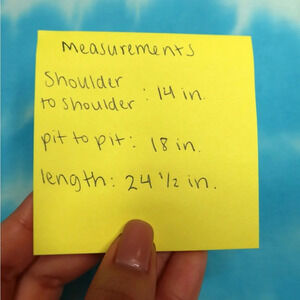 Measurements
Shoulder
to shoulder : 14 in.
pit to pit : 18 in.
length : 24 1/2 in.